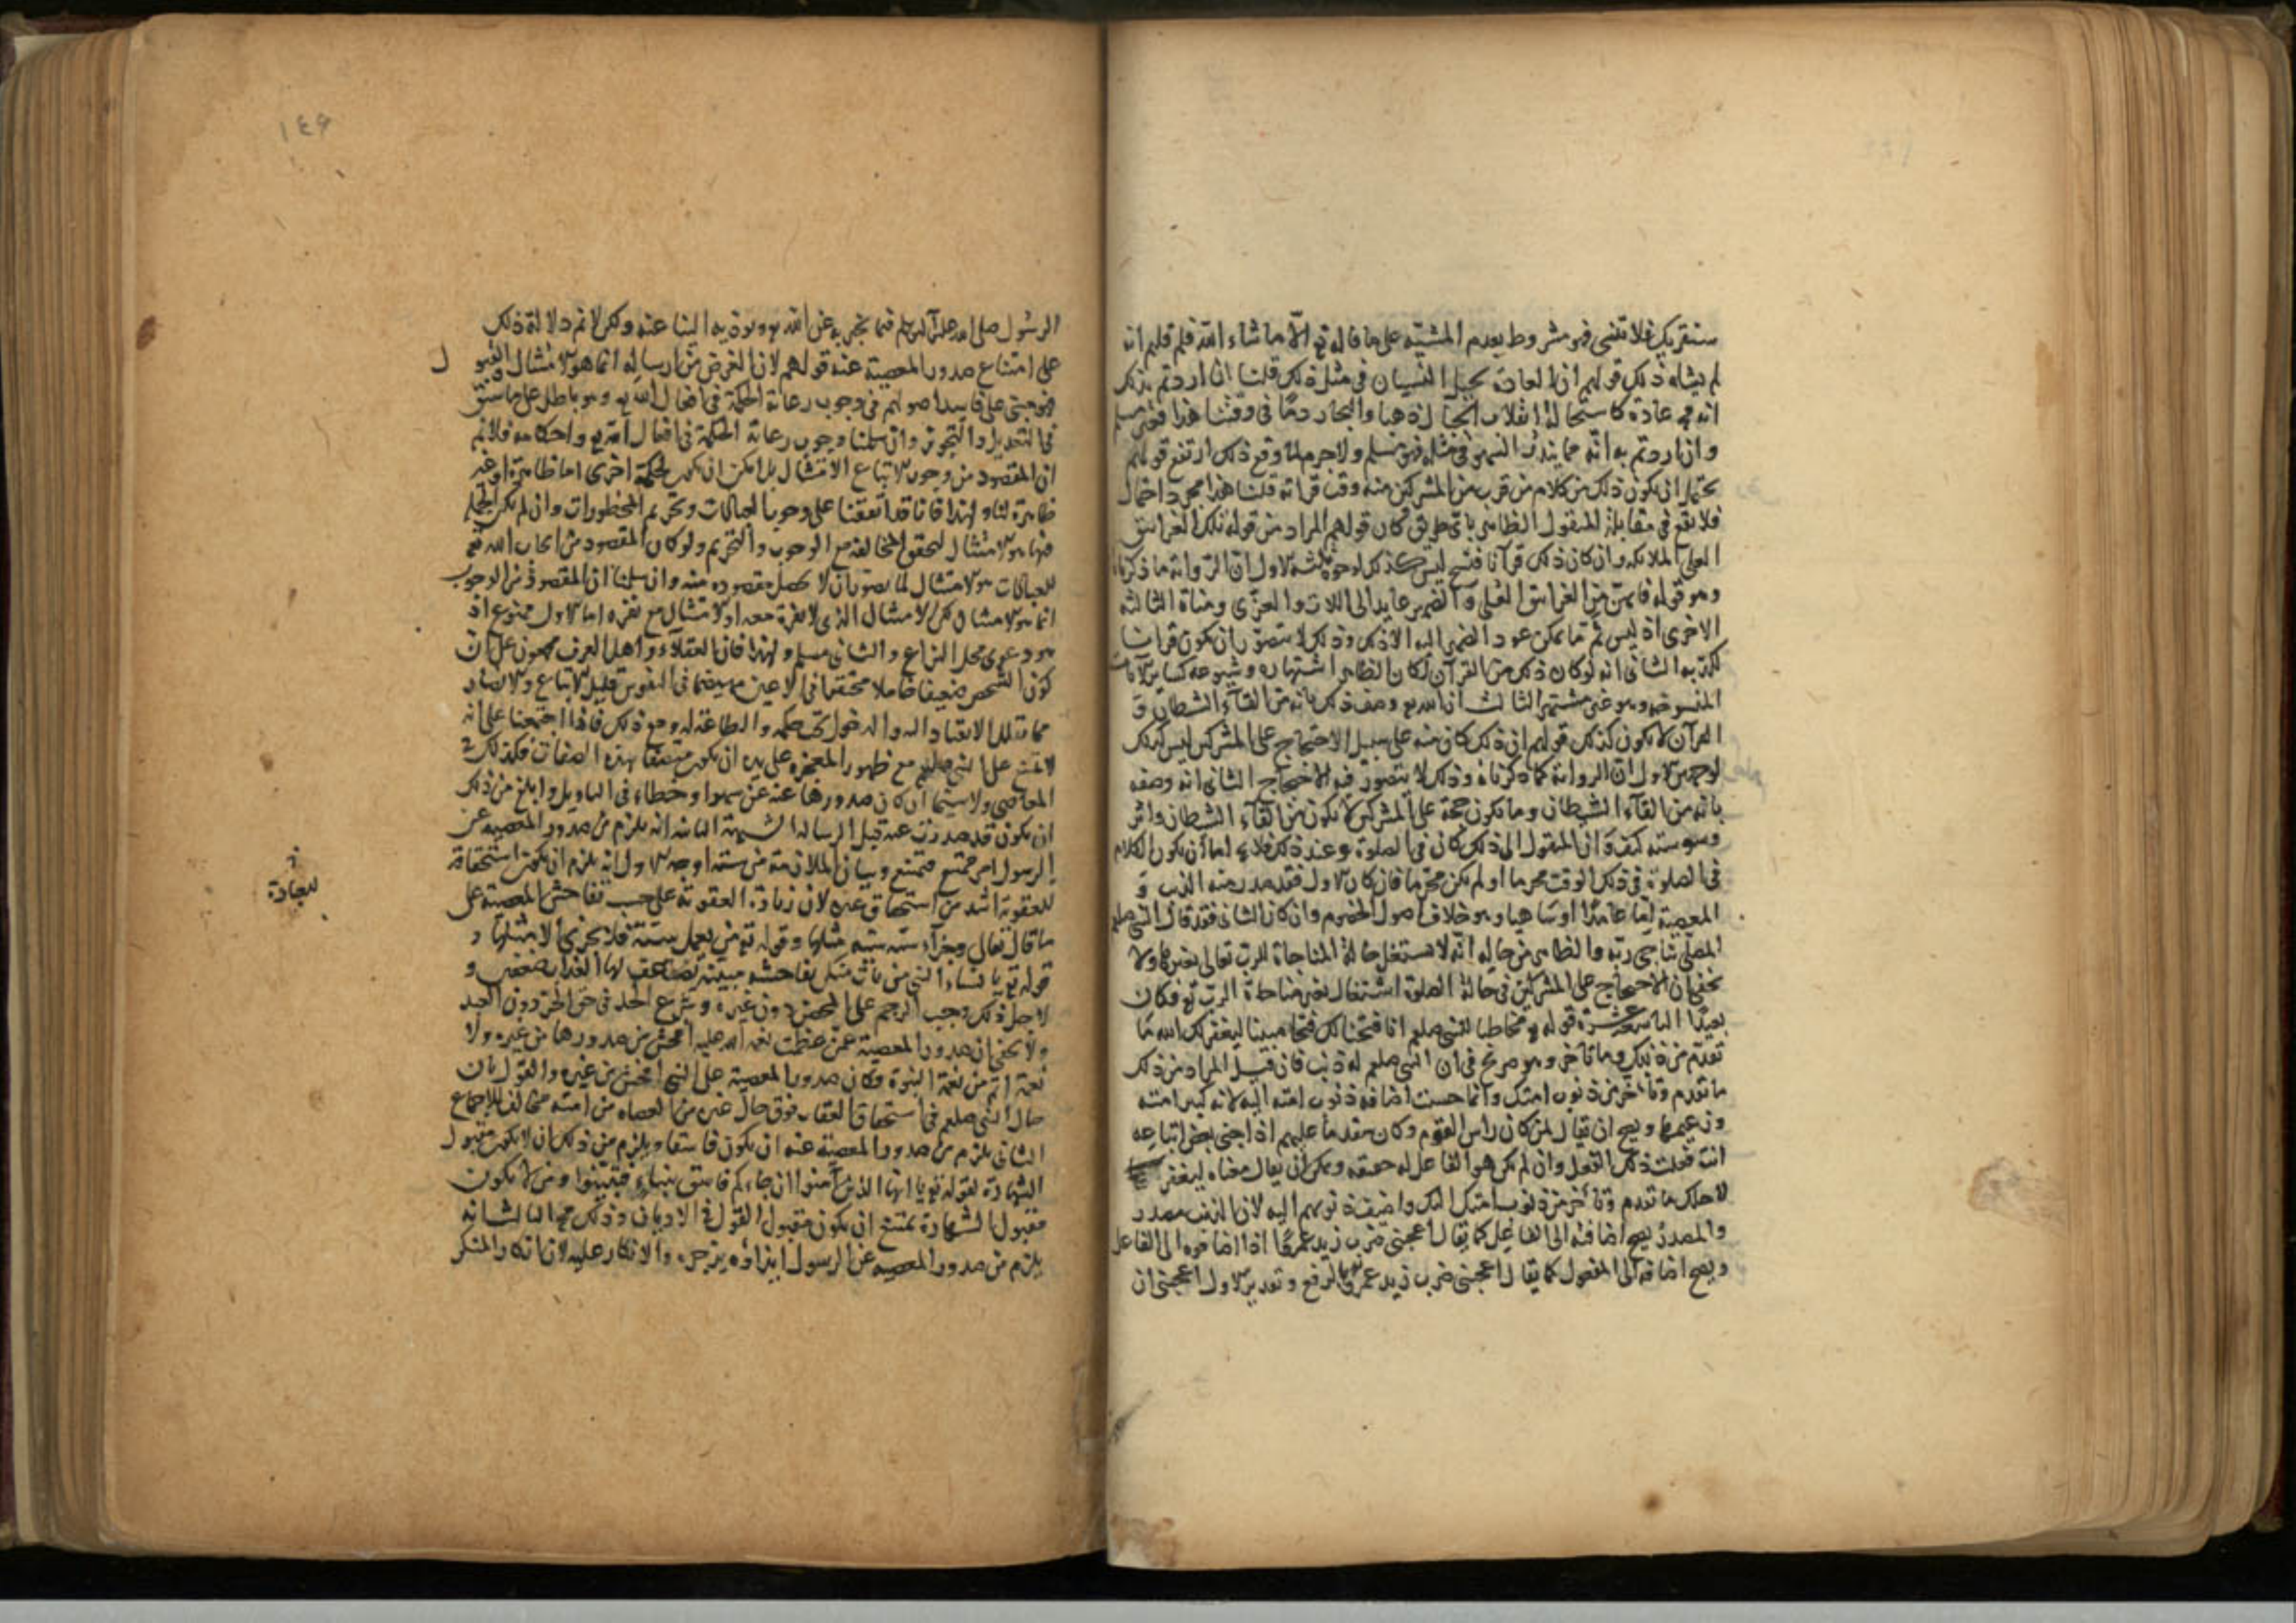 سنقريك فلا تنسى فهو مشروط بعدم المشيئة على ما قاله تع الا ما شاء الله فلم قلتم انه
لم يشاء ذلك قولهم ان العادة تحيل النسيان في مثل ذلك قلنا ان اردتم بذلك
انه مح عادة كاستحالة انقلاب الجبال ذهبا والبحار دما في وقتنا هذا فغير مسلم
وان اردتم به انه مما يندر السهو في مثله فهو مسلم ولا جرم لما وقع ذلك ارتفع قولهم
يحتمل ان يكون ذلك من كلام من قرب من المشركين منه وقت قراته قلنا هذا مجرد احتمال
فلا يقع في مقابلة المنقول الظاهر باي طريق كان قولهم المراد من قوله تلك الغرانيق
العلى الملائكة وان كان ذلك قرآنا فنسخ ليس كذلك لوجوه ثلثة الاول ان الرواية ما ذكرناه
وهو قوله فانهن من الغرانيق العلى والضمير عايد الى اللات والعزى ومناة الثالثة
الاخرى اذ ليس ثم ما يمكن عود الضمير اليه الا ذلك وذلك لا يتصور ان يكون قرانا
لكذبه الثاني انه لو كان ذلك من القرآن لكان الظاهر اشتهاره وشيوعه كساير الآيات
المنسوخة وهو غير مشتهر الثالث ان الله تع وصف ذلك بانه من القاء الشيطان و
القرآن لا يكون كذلك قولهم ان ذلك كان منه على سبيل الاحتجاج على المشركين ليس كذلك
لوجهين الاول ان الرواية كما ذكرناه وذلك لا يتصور فيه الاحتجاج الثاني انه وصفه
بانه من القاء الشيطان وما يكون حجة على المشركين لا يكون من القاء الشيطان واثر
وسوسته كيف وان المنقول ان ذلك كان في الصلوة وعند ذلك فلا يخ اما ان يكون الكلام
في الصلوة في ذلك الوقت محرما او لم يكن محرما فان كان الاول فقد صدر منه الذنب و
المعصية اما عامدا او ساهيا وهو خلاف اصول الخصوم وان كان الثاني فقد قال النبي صلعم
المصلي يناجي ربه والظاهر من حاله انه لا يستغل حالة المناجاة للرب تعالى بغيرها ولا
يخفى ان الاحتجاج على المشركين في حالة الصلوة اشتغال بغير مناجاة الرب تع فكان
بعيدا التاسعة عشرة قوله تع مخاطبا للنبي صلعم انا فتحنا لك فتحا مبينا ليغفر لك الله ما
تقدم من ذنبك وما تاخر وهو صريح في ان النبي صلعم له ذنب فان قيل المراد من ذلك
ما تقدم وتأخر من ذنوب امتك وانما حسنت اضافة ذنوب امته اليه لانه كبير امته
وزعيمها ويصح ان يقال لمن كان راس القوم وكان مقدما عليهم اذا جنى بعض اتباعه
انت فعلت ذلك الفعل وان لم يكن هو الفاعل له حقيقة ويمكن ان يقال معناه ليغفر
لاجلك ما تقدم وتأخر من ذنوب امتك اليك واضيفت ذنوبهم اليه لان الذنب مصدر
والمصدر يصح اضافته الى الفاعل كما يقال اعجبني ضرب زيد عمرا اذا اضافوه الى الفاعل
ويصح اضافته الى المفعول كما يقال اعجبني ضرب زيد عمرو بالرفع وتقدير الاول اعجبني ان
١٤۶
الرسول صلى الله عليه وآله وسلم فيما يخبر به عن الله تع ويوديه الينا عنه ولكن لا نم دلالة ذلك
على امتناع صدور المعصية عنه قولهم لان الغرض من ارساله انما هو الامتثال والقبول
فهو مبني على فاسد اصولهم في وجوب رعاية الحكمة في افعال الله تع وهو باطل على ما سبق
في التعديل والتجوير وان سلمنا وجوب رعاية الحكمة في افعال الله تع واحكامه فلا نم
ان المقصود من وجوب الاتباع الامتثال بل امكن ان يكون لحكمة اخرى اما ظاهرة او غير
ظاهرة لنا ولهذا فانا قد اتفقنا على وجوب العبادات وتحريم المحظورات وان لم تكن الحكمة
فيها هو الامتثال لتحقق المخالفة مع الوجوب والتحريم ولو كان المقصود من ايجاب الله تع
للعبادات هو الامتثال لما تصور ان لا يحصل مقصوده منه وان سلمنا ان المقصود من الوجوب
انما هو الامتثال لكن الامتثال الذي لا نفرة معه او الامتثال مع نفره اما الاول ممنوع اذ
هو دعوى محل النزاع والثاني مسلم ولهذا فان العقلاء واهل العرف مجمعون على ان
كون الشخص ضعيفا خاملا محتقرا في الاعين مهيضا في النفوس قليل الاتباع والانصار
مما يقلل الانقياد اليه والدخول تحت حكمه والطاعة له ومع ذلك فاذا اجتمعنا على انه
لا يمتنع على النبي صلعم مع ظهور المعجزة على يده ان يكون متصفا بهذه الصفات فكذلك في
المعاصي ولا سيما ان كان صدورها عنه عن سهو او خطاء في التاويل وابلغ من ذلك
ان يكون قد صدرت عنه قبل الرسالة الشبهة الثانية انه يلزم من صدور المعصية عن
الرسول امر ممتنع فتمتنع وبيان الملازمة من ستة اوجه الاول انه يلزم ان يكون استحقاقه
للعقوبة اشد من استحقاق غيره لان زيادة العقوبة على حسب تفاحش المعصية على
ما قال تعالى وجزاء سيئة سيئة مثلها وقوله تع من يعمل سيئة فلا يجزى الا مثلها و
قوله تع يا نساء النبي من يأت منكن بفاحشة مبينة يضاعف لها العذاب ضعفين و
لاجل ذلك وجب الرجم على المحصن دون غيره وشرع الحد في حق الحر دون العبد
ولا يخفى ان صدور المعصية عمن عظمت نعم الله عليه افحش من صدورها من غيره ولا
نعمة اتم من نعمة النبوة وكان صدور المعصية على النبي افحش من غيره والقول بان
حال النبي صلعم في استحقاق العقاب فوق حال غيره من العصاه من امته مخالف للاجماع
الثاني يلزم من صدور المعصية عنه ان يكون فاسقا ويلزم من ذلك ان لا يكون مقبول
الشهادة لقوله تع يا ايها الذين آمنوا ان جاءكم فاسق بنباء فتبينوا ومن لا يكون
مقبول الشهادة يمتنع ان يكون مقبول القول في الاديان وذلك مح الثالث انه
يلزم من صدور المعصية عن الرسول ايذاؤه بزجره والانكار عليه لان انكار المنكر
للعبادة